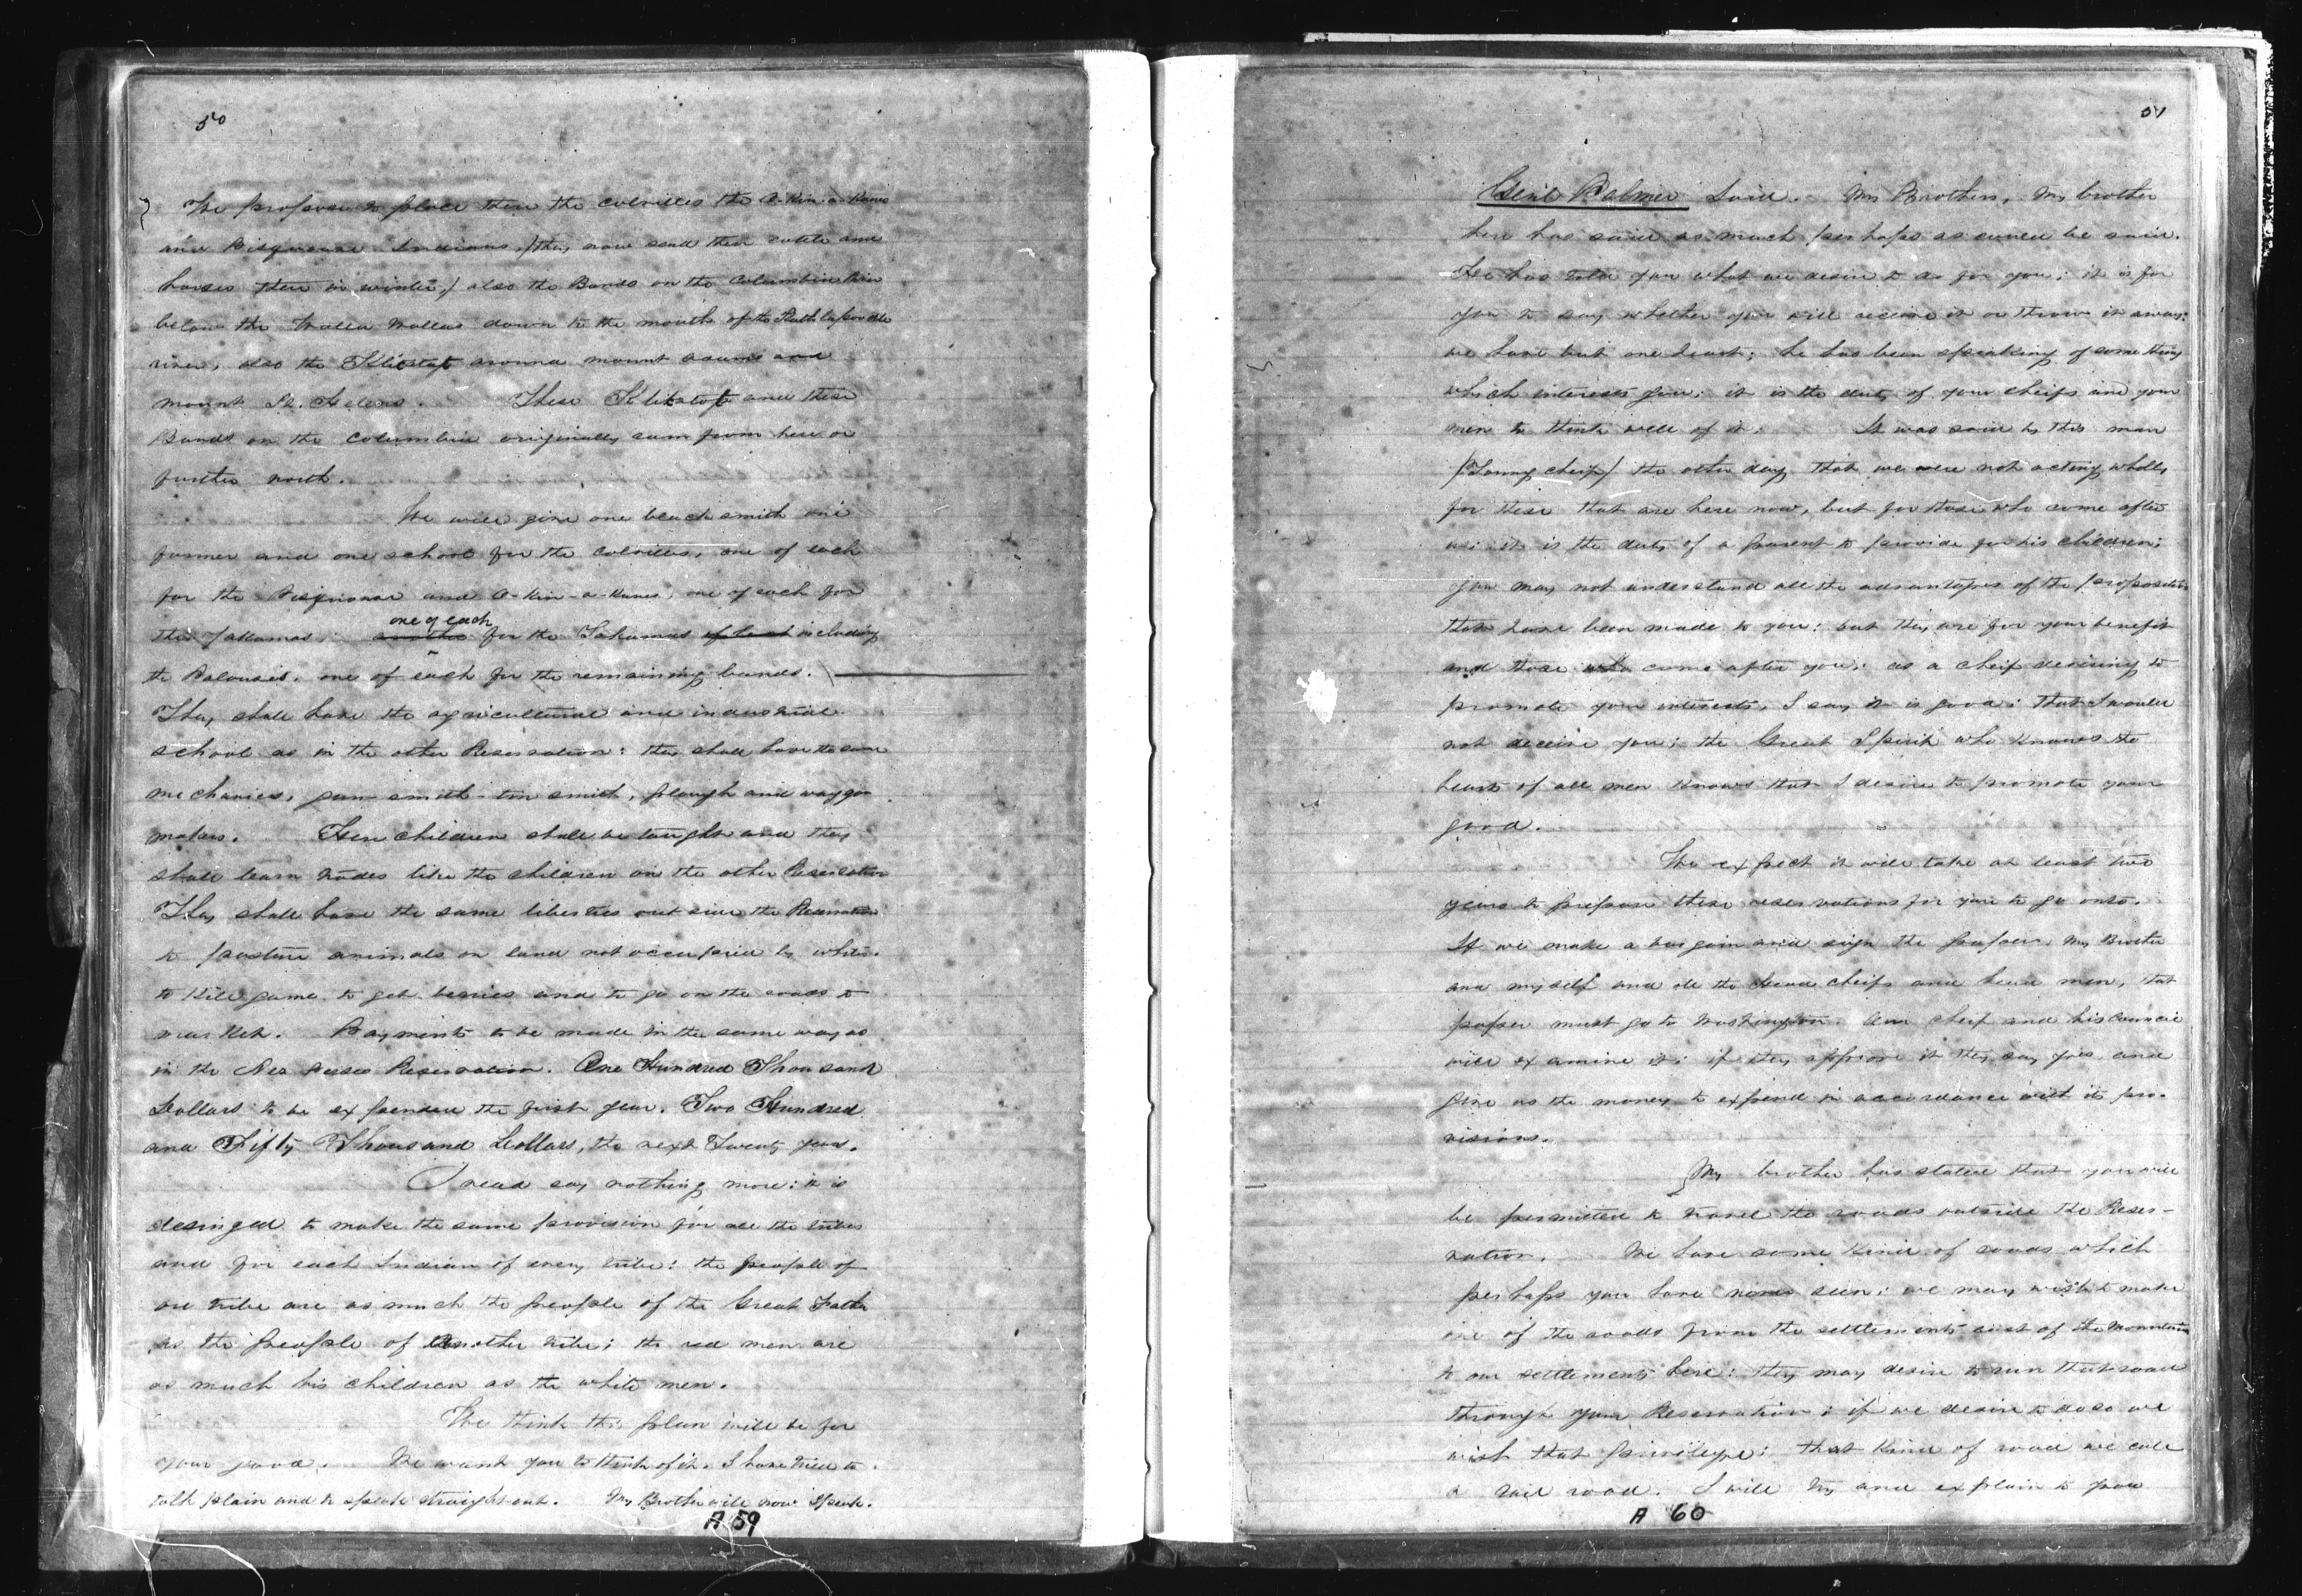 50
We propose to place there the Colvilles the O-Kin-a-Kanes
and Pisquouse Indians, /they now send their cattle and
horses there in winter,/ also the Bands on the Columbia River
below the Walla Wallas down to the mouth of the Kathlapoodle
river, also the Klikitat around mount Adams and
mount St. Helens. These Klikatats and these
Bands on the Columbia originally came from here or
further north.
We will give one blacksmith one
farmer and one school for the Colvilles, one of each
for the Pisquouse and O-Kin-a-Kanes, one of each for
the Yakamas, one of each for the Yakamas including
the Palouses. one of each for the remaining bands.
They shall have the agricultural and industrial
school as in the other Reservation: they shall have the same
mechanics, gun-smith-tin smith, plough and waggon
makers. Here children shall be taught and they
shall learn trades like the children on the other Reservation
They shall have the same liberties outside the Reservation
to pasture animals on land not occupied by whites.
to kill game to get berries and to go on the roads to
market. Payments to be made in the same way as
in the Nez Perses Reservation. One Hundred Thousand
Dollars to be expended the first year. Two Hundred
and Fifty Thousand Dollars, the next Twenty years.
I need say nothing more: it is
desinged to make the same provision for all the tribes
and for each Indian of every tribe: the people of
one tribe are as much the people of the Great Father
as the people of another tribe; the red men are
as much his children as the white men.
We think this plan will be for
your good. We want you to think of it. I have tried to
talk plain and to speak straight out. My Brother will now speak.
A 59
51
Genl Palmer Said. My Brothers, My brother
here has said as much perhaps as could be said.
He has told you what we desire to do for you; it is for
you to say whether you will receive it or throw it away:
we have but one heart; he has been speaking of something
which interests you: it is the duty of your cheifs and your
men to think well of it. It was said by this man
/Young cheif/ the other day that we were not acting wholly
for these that are here now, but for those who come after
us: it is the duty of a parent to provide for his children;
you may not understand all the advantages of the propositions
that have been made to you: but they are for your benefit
and those who come after you: as a cheif desiring to
promote your interests, I say it is good: that I would
not deceive you; the Great Spirit who knows the
hearts of all men knows that I desire to promote your
good.
We expect it will take at least two
years to prepare these reservations for you to go onto.
If we make a bargain and sign the paper, My Brother
and myself and all the head cheifs and head men, that
paper must go to Washington. Our cheif and his council
will examine it: if they approve it they say yes and
give us the money to expend in accordance with its pro-
visions.
My brother has stated that you will
be permitted to travel the roads outside the Reser-
vation. We have some kind of roads which
perhaps you have never seen: we may wish to make
one of the roads from the settlements east of the Mountains
to our settlements here: they may desire to run that road
through your Reservation: if we desire to do so we
wish that privilege: that kind of road we call
a rail road. I will try and explain to you
A 60